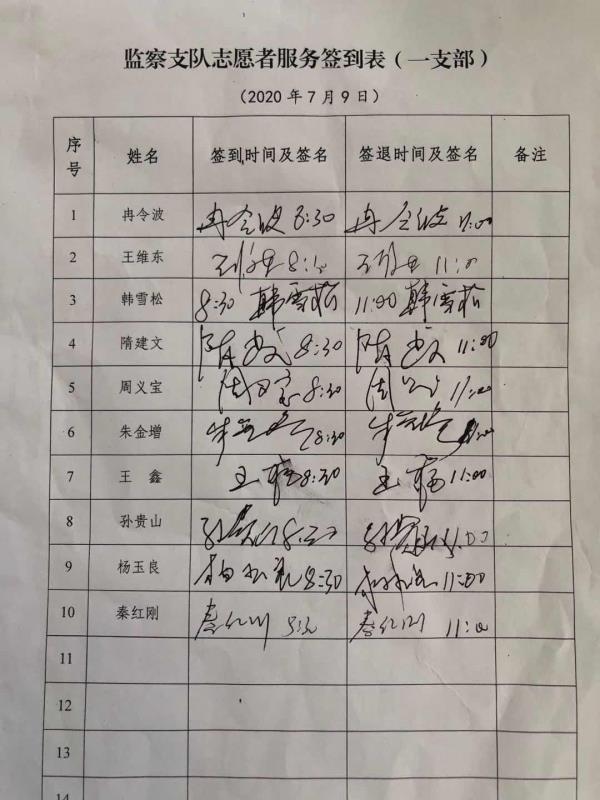 监察支队志愿者服务签到表（一支部）
（2020 年 7 月 9 日）
序号 姓名 签到时间及签名 签退时间及签名 备注
1 冉令波 冉令波 8:30 冉令波 11:00
2 王维东 11:00
3 韩雪松 8:30 韩雪松 11:00 韩雪松
4 隋建文 隋建文 8:30 隋建文 11:00
5 周义宝 周义宝 8:30 周义宝 11:00
6 朱金增 朱金增 8:30 朱金增
7 王 鑫 王鑫 8:30 王鑫 11:00
8 孙贵山 孙贵山 8:30 孙贵山 11:00
9 杨玉良 杨玉良 8:30 杨玉良 11:00
10 秦红刚 秦红刚 8:30 秦红刚 11:00
11
12
13
14